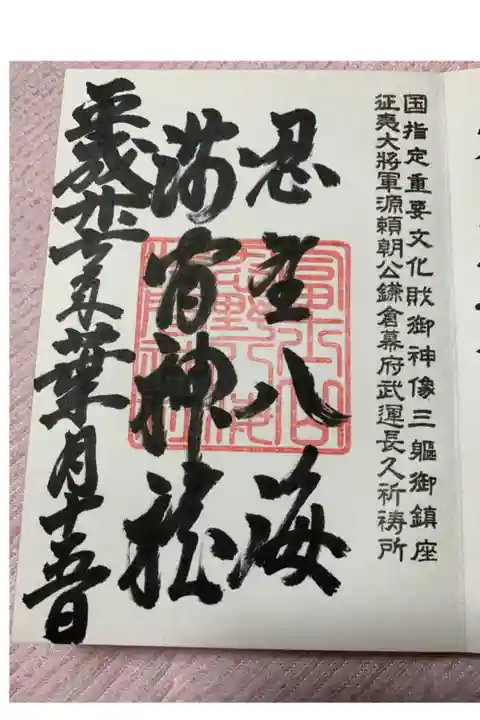 国指定重要文化財御神像三軀御鎮座
征夷大將軍源頼朝公鎌倉幕府武運長久祈祷所
忍埜八海
浅間神社
平成廿年葉月十五日